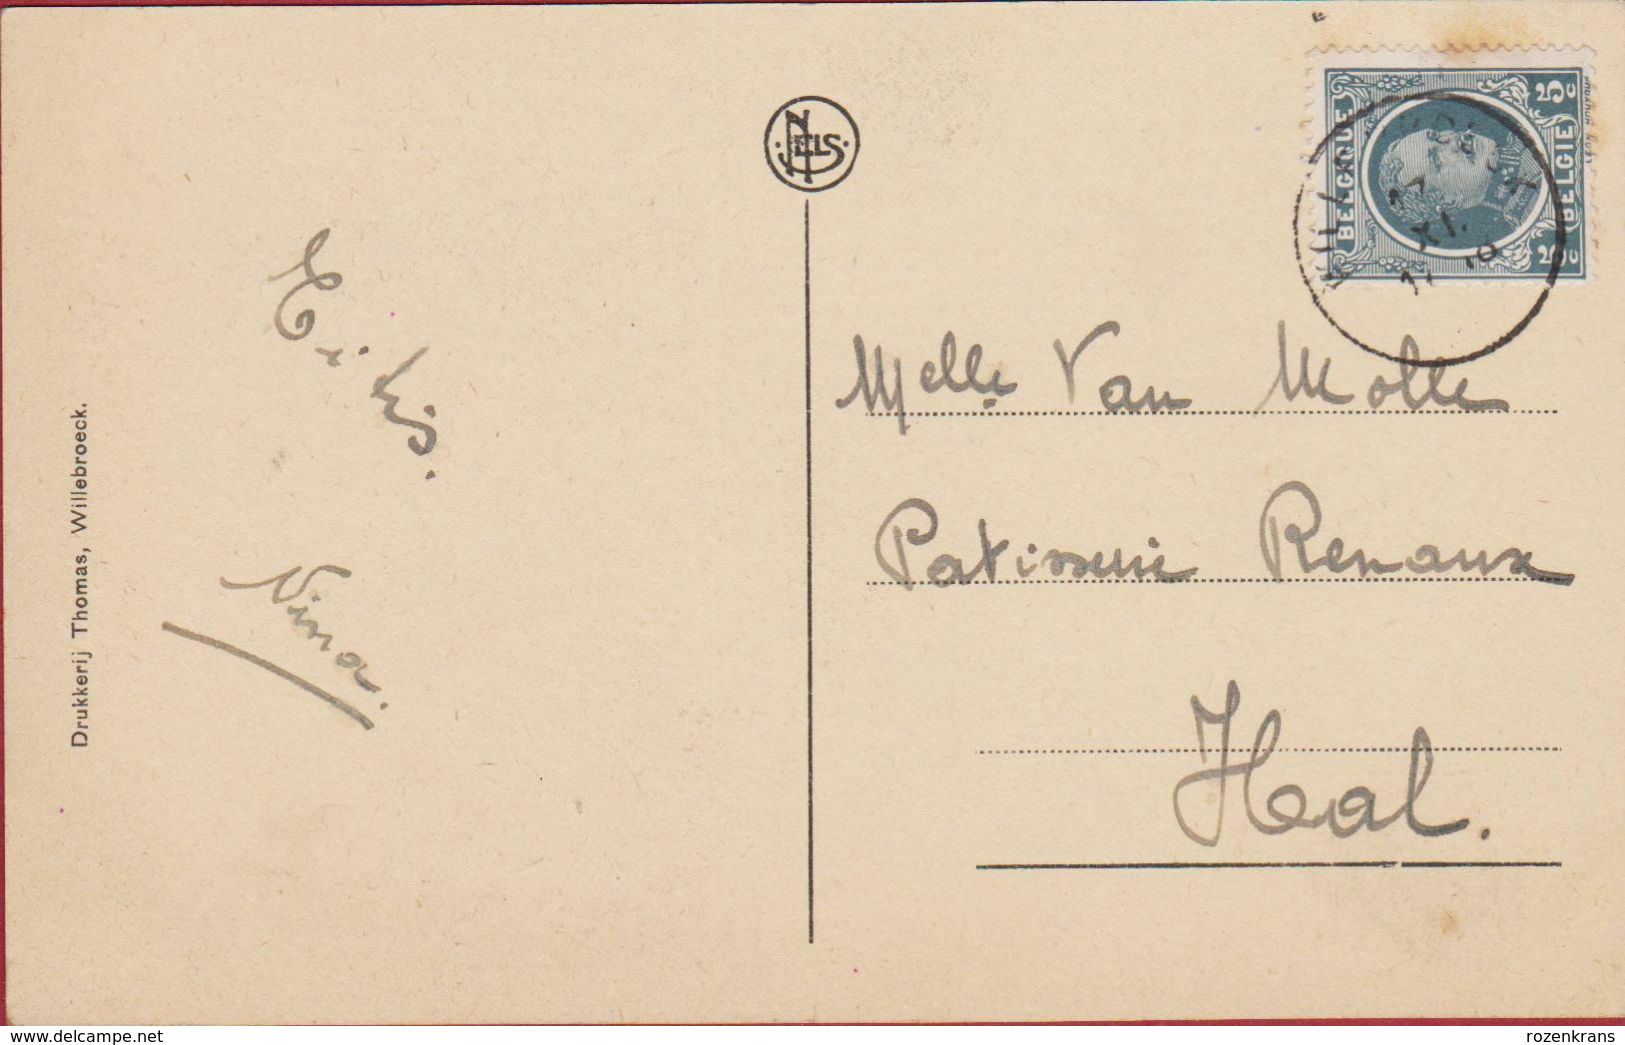 Drukkerij Thomas, Willebroeck.
NELS
BELGIQUE
5 c
BELGIE
5 c
17
XI.
Melle Van Molle
Patisserie Renaux
Hal.
Nina.
delcampe.net
rozenkrans